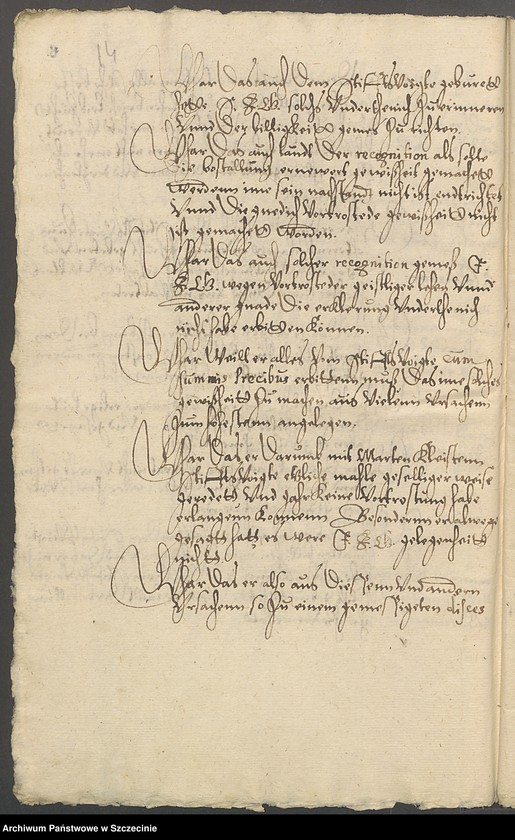 14
War das auch dem Stifftsvoigte geburet
hette J. F. G. solchs underthenich zu erinneren
Unnd der billigkeit gemes zu richten.
War das auch lauts der recognition als solte
die bestallung ernewert gewißheit gemachet
werdenn ime sein nachstandt nicht entrichtet
Unnd die gnedich vortrostede gewißheit nicht
ist gemachet worden.
War das auch solcher recognition gemeß J.
F. G. wegen vortrosteder geistliger lehen unnd
anderer gnade die erklerung underthenich
nicht habe erbitten konnen.
War Weill er alles von Stiffts Voigte cum
summis precibus erbittenn muß das ime solches
gewißheit zu machen aus vielenn ursachenn
zum hogestenn angelegen.
War das er darumb mit Marten Kleistenn
Stifftsvoigte etzliche mahle geselliger weise
geredet und gahr keine vortrostung habe
erlangenn konnenn Besonderenn er alwege
gesagt hatt, es were J. F. G. gelegenheit
nicht.
War das er also aus diessenn und andern
ursachenn so zu einem gemessigeten